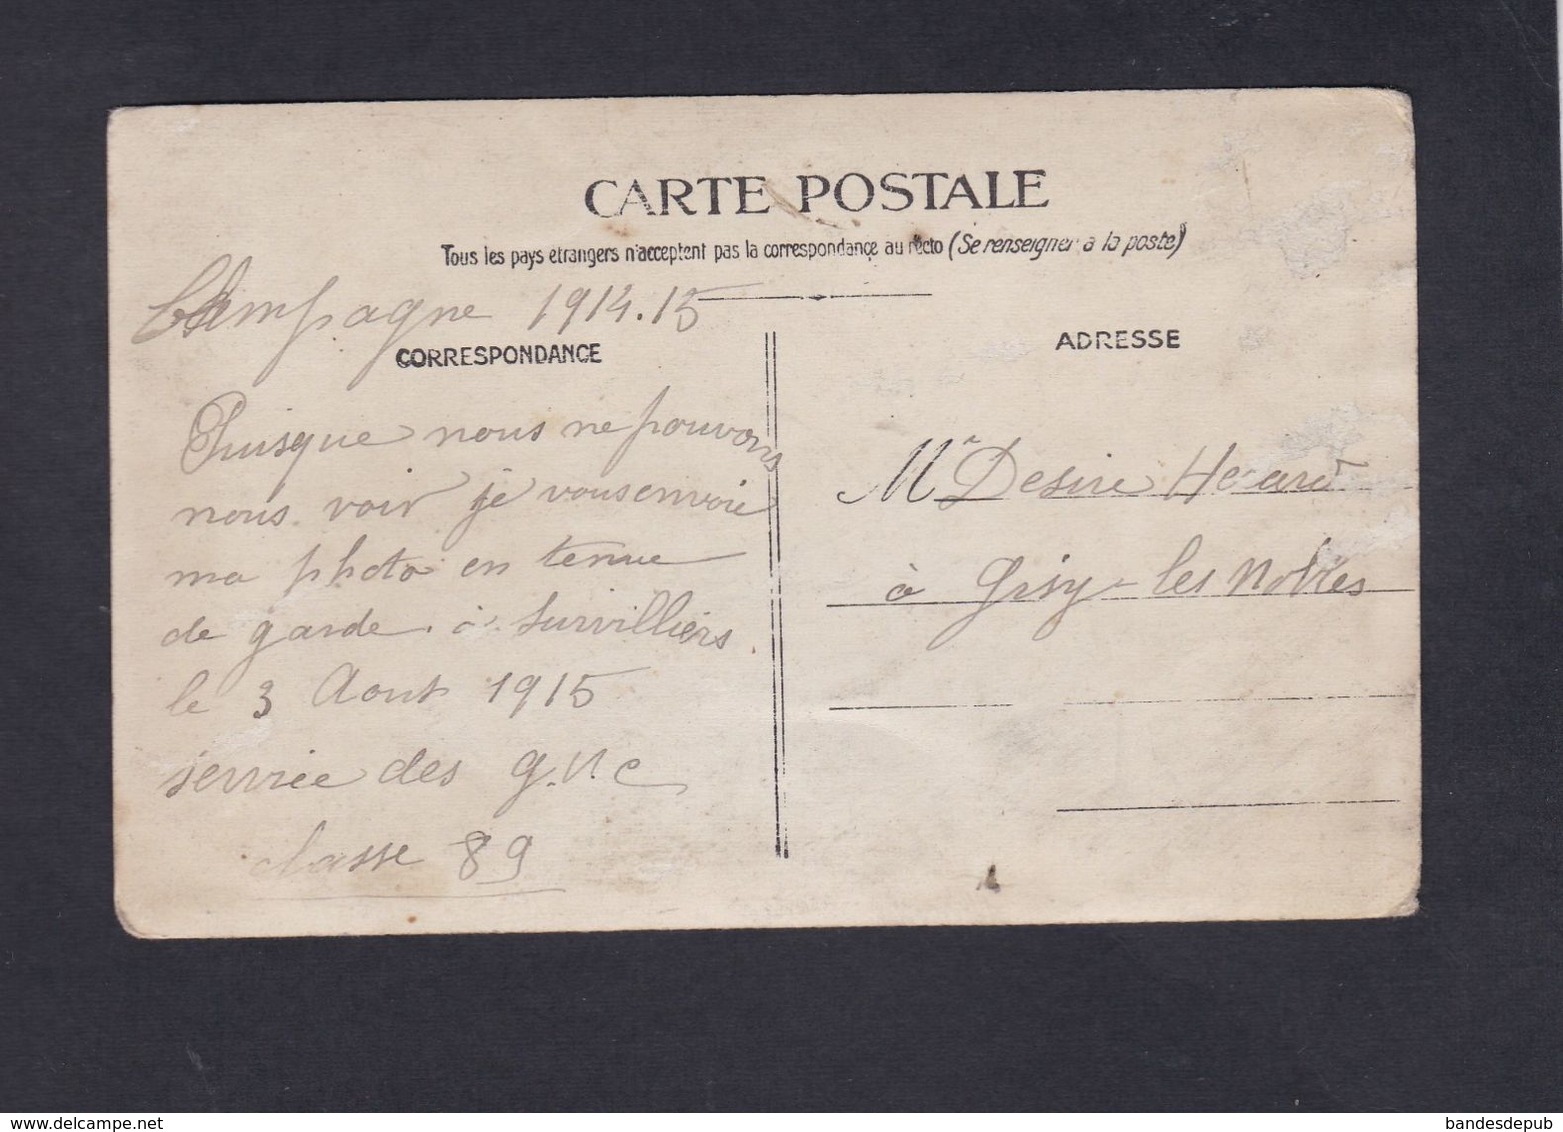 CARTE POSTALE
Tous les pays etrangers n'acceptent pas la correspondance au recto (Se renseigner a la poste)
Campagne 1914.15
CORRESPONDANCE
Puisque nous ne pouvons
nous voir je vous envoie
ma photo en tenue
de garde à Survilliers.
le 3 Aout 1915
service des g.v.c
classe 89
ADRESSE
Mr Desire
à Gisy-les Nobles
www.delcampe.net
bandesdepub